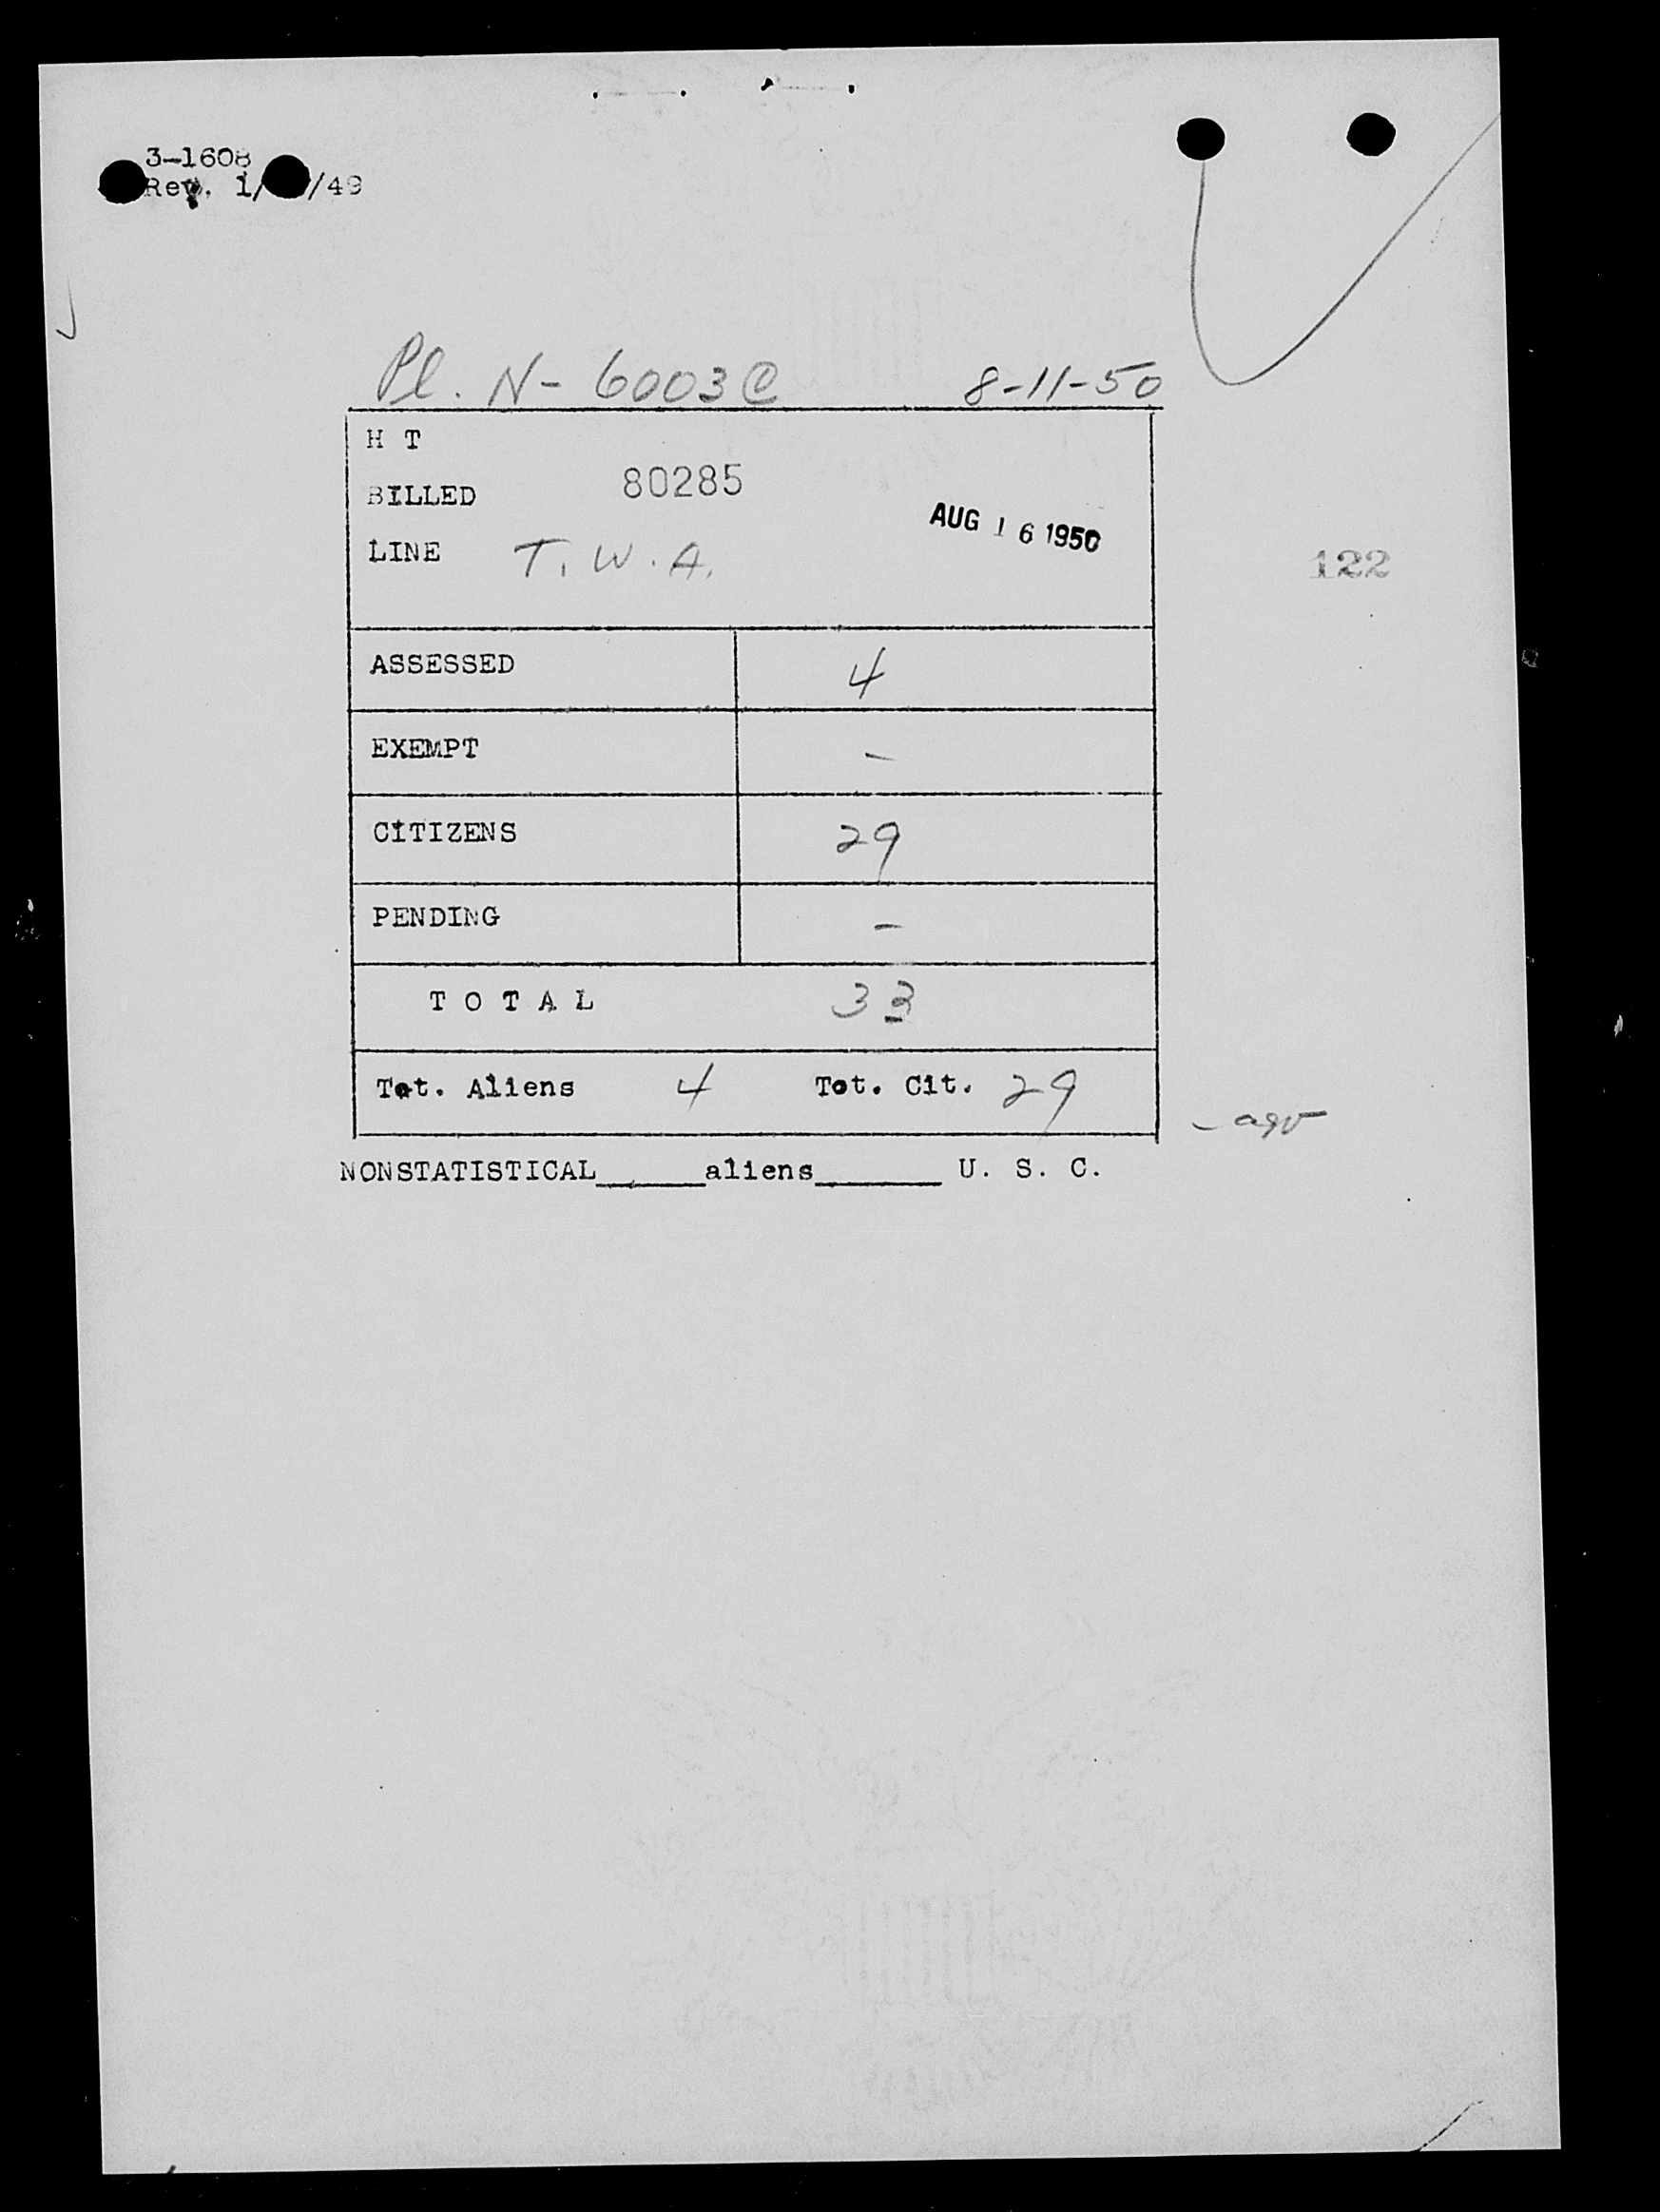 3-1608
Rev. 1/ /49
Pl. N- 6003C 8-11-50
H T
BILLED 80285
AUG 16 1950
LINE T. W. A.
122
ASSESSED 4
EXEMPT -
CITIZENS 29
PENDING -
T O T A L 33
Tot. Aliens 4 Tot. Cit. 29
NONSTATISTICAL______aliens_______ U. S. C.